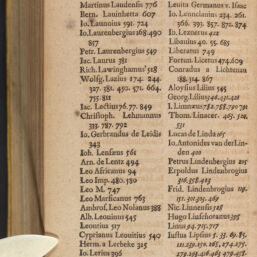 Martinus Laudensis 776
Bern. Lauinhetta 607
Io. Launoius 591. 724
Io. Laurenbergius 168. 490
857
Petr. Laurenbergius 549
Iac. Laurus 381
Rich. Lawinghamus 518
Wolfg. Lazius 174. 244.
327. 381. 450. 571. 664.
755. 811
Iac. Lectius 76. 77. 849
Christoph. Lehmannus
333. 787. 792
Io. Gerbrandus de Leidis
343
Ioh. Lensæus 561
Arn. de Lentz 494
Leo Africanus 94
Leo Imp. 480. 580
Leo M. 747
Leo Marsicanus 763
Ambros. Leo Nolanus 388
Alb. Leoninus 545
Leontius 517
Cyprianus Leouitius 540
Herm. a Lerbeke 325
Io. Lerius 396
Leuita Germanus v. Isaac
Io. Leunclauius 234. 261.
366. 791. 857. 871. 874
Io. Leznerus 412
Libanius 40. 55. 685
Liberatus 749
Fortun. Licetus 474. 609
Conradus a Lichtenau
188. 314. 867
Aloysius Lilius 545
Georg. Lilius
Thom. Linacer.
Lucas de Linda 165
Io. Antonides van der Lin-
den 410
Petrus Lindenbergius
Erpoldus Lindenbrogius
Frid. Lindenbrogius
Nic. Linnensis 528
Hugo Linschotanus 395
Linus 94. 715. 717
Iustus Lipsius 5. 33. 69. 85.